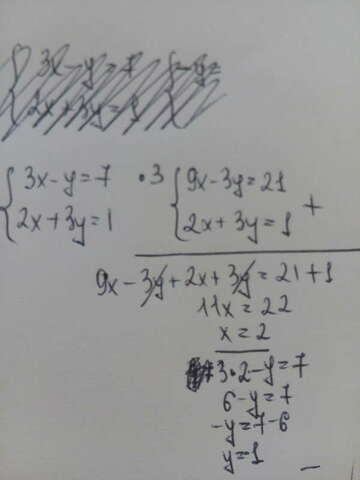 3x-y=7
2x+3y=1
{3x-y=7 •3 {9x-3y=21
{2x+3y=1 {2x+3y=1 +
9x-3y+2x+3y=21+1
11x=22
x=2
3•2-y=7
6-y=7
-y=7-6
y=1